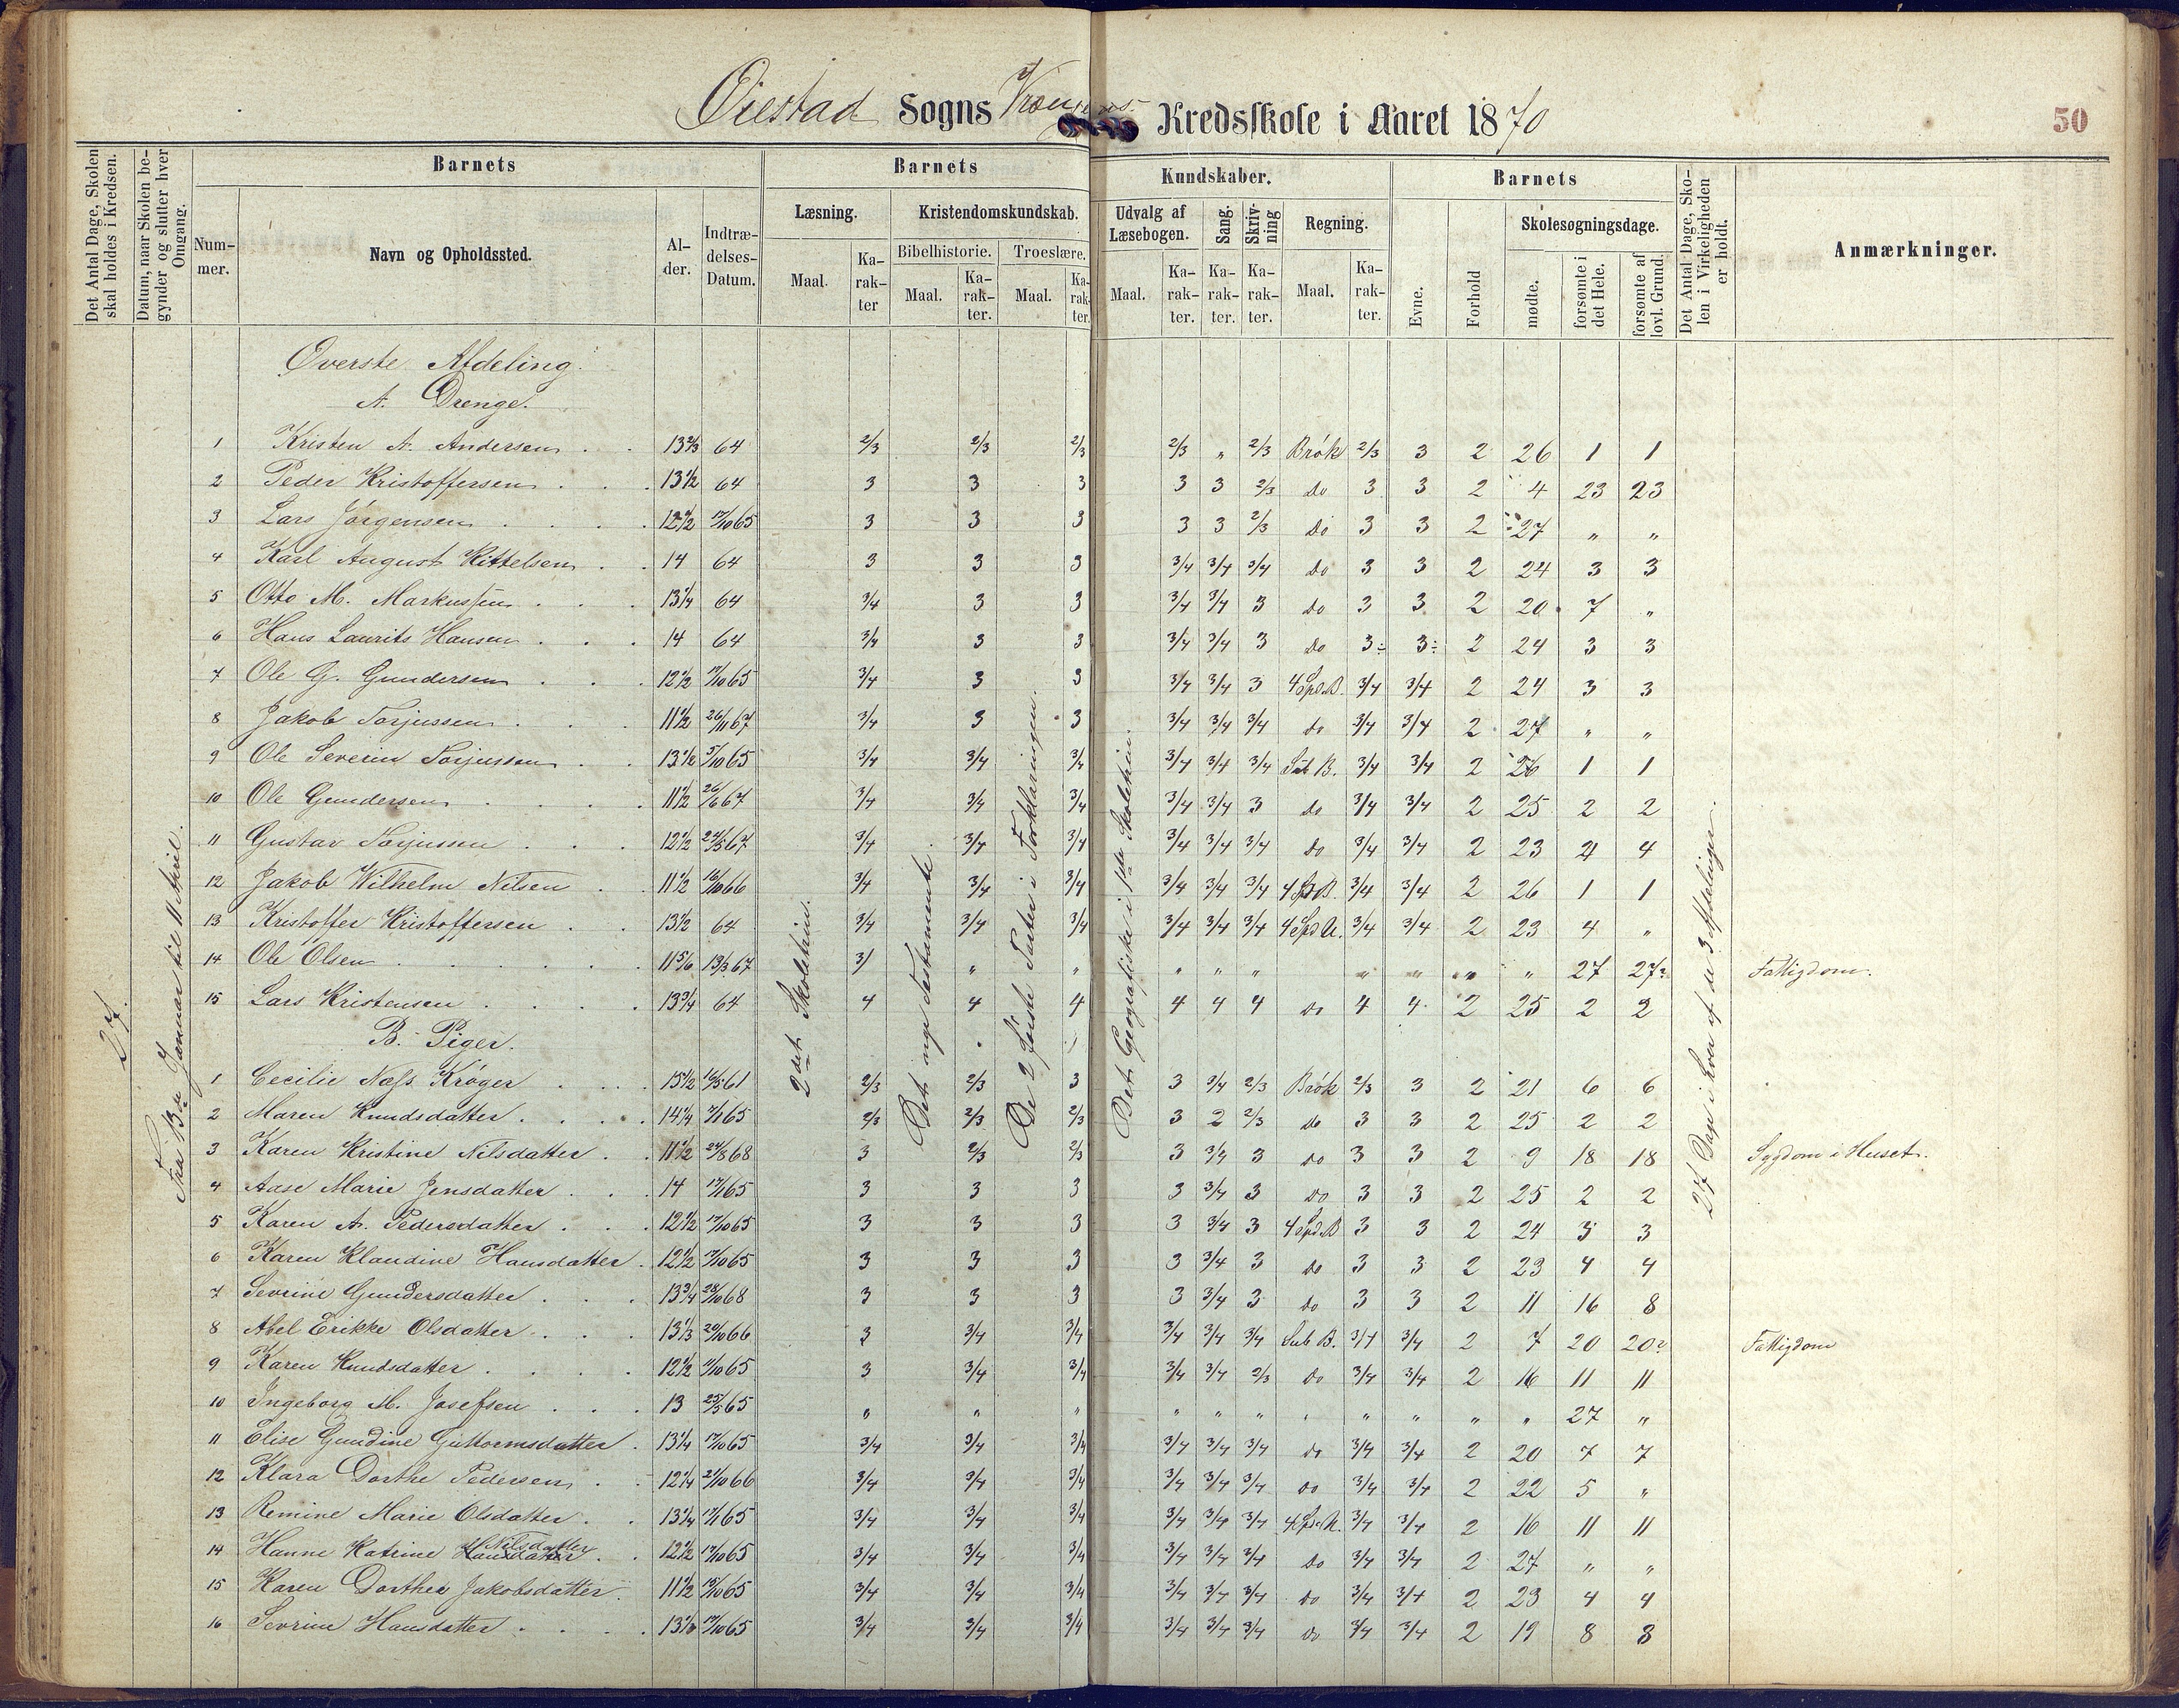 Øiestad Sogns Kredsskole i Aaret 1870
50
Det Antal Dage, Skolen skal holdes i Kredsen.
Datum, naar Skolen begynder og slutter hver Omgang.
Barnets
Nummer.
Navn og Opholdssted.
Alder.
Indtrædelses-Datum.
Barnets Kundskaber.
Læsning.
Maal.
Karakter
Kristendomskundskab.
Bibelhistorie.
Maal.
Karakter.
Troeslære.
Maal.
Karakter.
Udvalg af Læsebogen.
Maal.
Karakter.
Sang.
Karakter.
Skrivning
Karakter.
Regning.
Maal.
Karakter.
Barnets
Evne.
Forhold
Skolesøgningsdage.
mødte.
forsømte i det Hele.
forsømte af lovl. Grund.
Det Antal Dage, Skolen i Virkeligheden er holdt.
Anmærkninger.
27.
Fra 13de Januar til 11 April.
2det Skoletrin.
Det nye Testamente.
De 2 første Parter i Forklaringen.
Det Geografiske i 1ste Skoletrin.
27 Dage i hver af de 3 Afdelinger.
Øverste Afdeling.
A. Drenge.
1 Kristen A. Andersen 13 2/3 64 2/3 2/3 2/3 2/3 " 2/3 Brøk 2/3 3 2 26 1 1
2 Peder Kristoffersen 13 1/2 64 3 3 3 3 3 2/3 do 3 3 2 4 23 23
3 Lars Jørgensen 12 1/2 17/10 65 3 3 3 3 3 2/3 do 3 3 2 27 " "
4 Karl August Kittelsen 14 64 3 3 3 3/4 3/4 3/4 do 3 3 2 24 3 3
5 Otto M. Markussen 13 1/4 64 3/4 3 3 3/4 3/4 3 do 3 3 2 20 7 "
6 Hans Laurits Hansen 14 64 3/4 3 3 3/4 3/4 3 do 3÷ 3÷ 2 24 3 3
7 Ole G. Gundersen 12 1/2 17/10 65 3/4 3 3 3/4 3/4 3 4 Spd B. 3/4 3/4 2 24 3 3
8 Jakob Torjussen 11 1/2 26/11 67 3/4 3 3 3/4 3/4 3/4 do 3/4 3/4 2 27 " "
9 Ole Severin Torjussen 5/10 65 3/4 3/4 3/4 3/4 3/4 3/4 Sub B. 3/4 3/4 2 26 1 1
10 Ole Gundersen 11 1/2 26/6 67 3/4 3/4 3/4 3/4 3/4 3 do 3/4 3/4 2 25 2 2
11 Gustav Torjussen 12 1/2 24/5 67 3/4 3/4 3/4 3/4 3/4 3/4 do 3/4 3/4 2 23 4 4
12 Jakob Wilhelm Nilsen 11 1/2 16/10 66 3/4 3/4 3/4 3/4 3/4 3/4 4 Sp B. 3/4 3/4 2 26 1 1
13 Kristoffer Kristoffersen 13 1/2 64 3/4 3/4 3/4 3/4 3/4 3/4 4 Spd U. 3/4 3/4 2 23 4 "
14 Ole Olsen 11 5/6 13/3 67 3/ " " " " " " " " " 27 27? Fattigdom.
15 Lars Kristensen 13 3/4 64 4 4 4 4 4 4 do 4 4 2 25 2 2
B. Piger.
1 Cecilie Næss Krøger 15 1/2 16/5 61 2/3 2/3 3 3 3/4 2/3 Brøk 2/3 3 2 21 6 6
2 Maren Knudsdatter 14 1/4 65 2/3 2/3 2/3 3 2 2/3 do 3 3 2 25 2 2
3 Karen Kristine Nilsdatter 11 1/2 24/8 68 3 2/3 2/3 3 3/4 3 do 3 3 2 9 18 18 Sygdom i Huset.
4 Aase Marie Jensdatter 14 65 3 3 3 3 3/4 3 do 3 3 2 25 2 2
5 Karen A. Pedersdatter 12 1/2 17/10 65 3 3 3 3 3/4 3 4 Spd B 3 3 2 24 3 3
6 Karen Klaudine Hansdatter 12 1/2 17/10 65 3 3 3 3 3/4 3 do 3 3 2 23 4 4
7 Sevrine Gundersdatter 13 3/4 28/10 68 3 3 3 3 3/4 3 do 3 3 2 11 16 8
8 Abel Erikke Olsdatter 13 1/3 29/10 66 3 3/4 3/4 3/4 3/4 3/4 Sub B. 3/4 3/4 2 7 20 20? Fattigdom
9 Karen Knudsdatter 12 1/2 65 3 3/4 3/4 3/4 3/4 2/3 do 3/4 3/4 2 16 11 11
10 Ingeborg M. Josefsen 13 25/5 65 " " " " " " " " " " " 27 "
11 Elise Gundine Guttormsdatter 13 1/4 17/10 65 3/4 3/4 3/4 3/4 3/4 3/4 do 3/4 3/4 2 20 7 7
12 Klara Dorthe Pedersen 12 1/4 21/10 66 3/4 3/4 3/4 3/4 3/4 3/4 do 3/4 3/4 2 22 5 "
13 Remine Marie Olsdatter 13 1/4 65 3/4 3/4 3/4 3/4 3/4 3/4 4 Spd U. 3/4 3/4 2 16 11 11
14 Hanne Katrine Hansdatter Nilsdatter 12 1/2 17/10 65 3/4 3/4 3/4 3/4 3/4 3/4 do 3/4 3/4 2 27 " "
15 Karen Dorthea Jakobsdatter 11 1/2 15/10 65 3/4 3/4 3/4 3/4 3/4 3/4 do 3/4 3/4 2 23 4 4
16 Sevrine Hansdatter 17/10 65 3/4 3/4 3/4 3/4 3/4 3/4 do 3/4 3/4 2 19 8 8